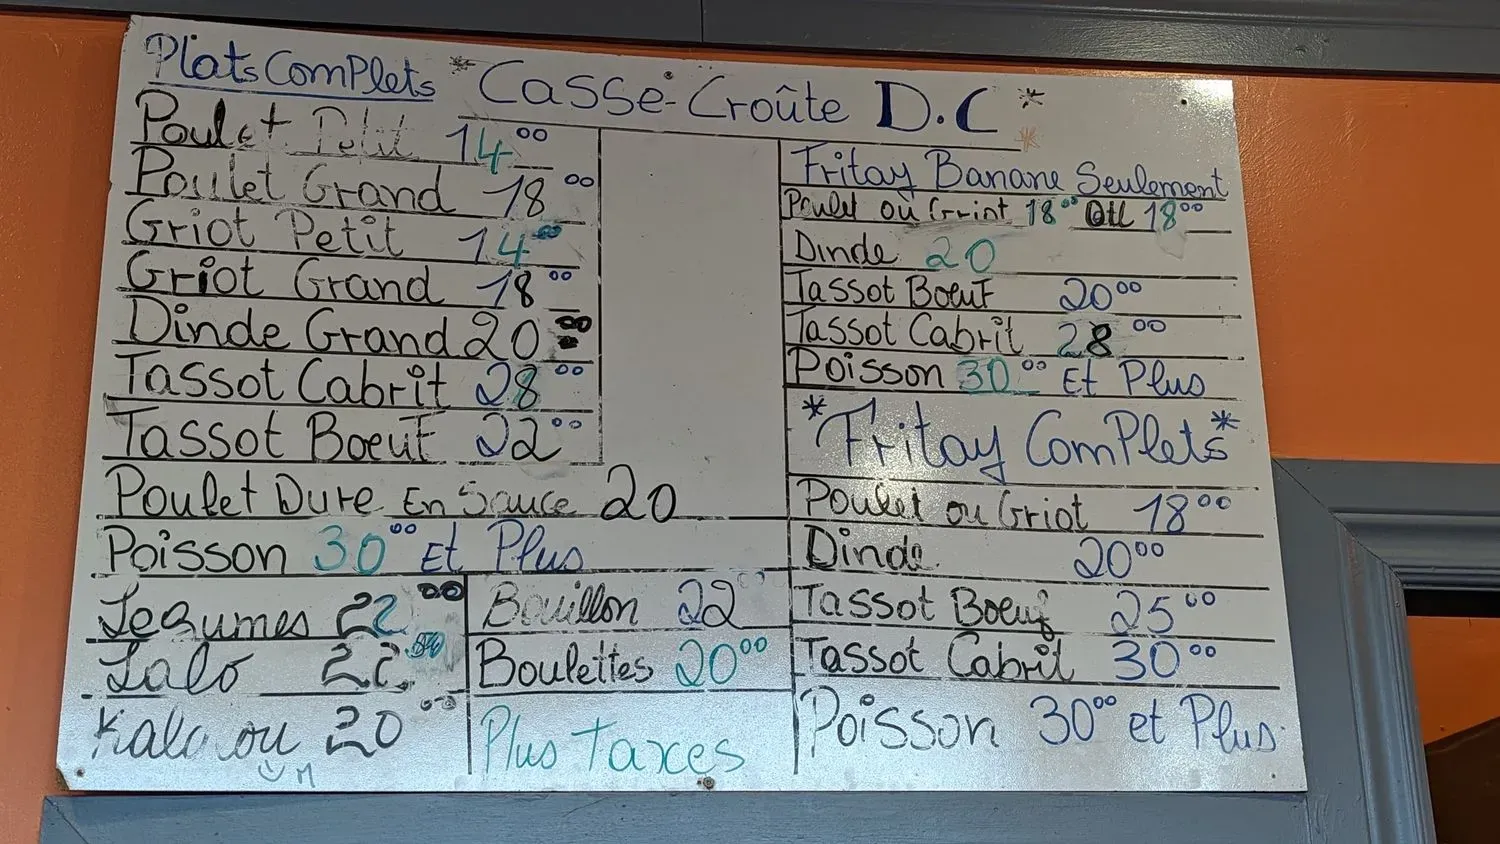 Plats ComPlets
* Casse-Croûte D.C *
Poulet Petit 14 00
Poulet Grand 18 00
Griot Petit 14 00
Griot Grand 18 00
Dinde Grand 20
Tassot Cabrit 28 00
Tassot Boeuf 22 00
Poulet Dure En Sauce 20
Poisson 30 00 Et Plus
Legumes 22 00
Lalo 22
Kalalou 20 00
Bouillon 22
Boulettes 20 00
Plus Taxes
Fritay Banane Seulement
Poulet où Griot 18 00 18 00
Dinde 20
Tassot Boeuf 20 00
Tassot Cabrit 28 00
Poisson 30 00 Et Plus
*Fritay ComPlets*
Poulet ou Griot 18 00
Dinde 20 00
Tassot Boeuf 25 00
Tassot Cabrit 30 00
Poisson 30 00 et Plus